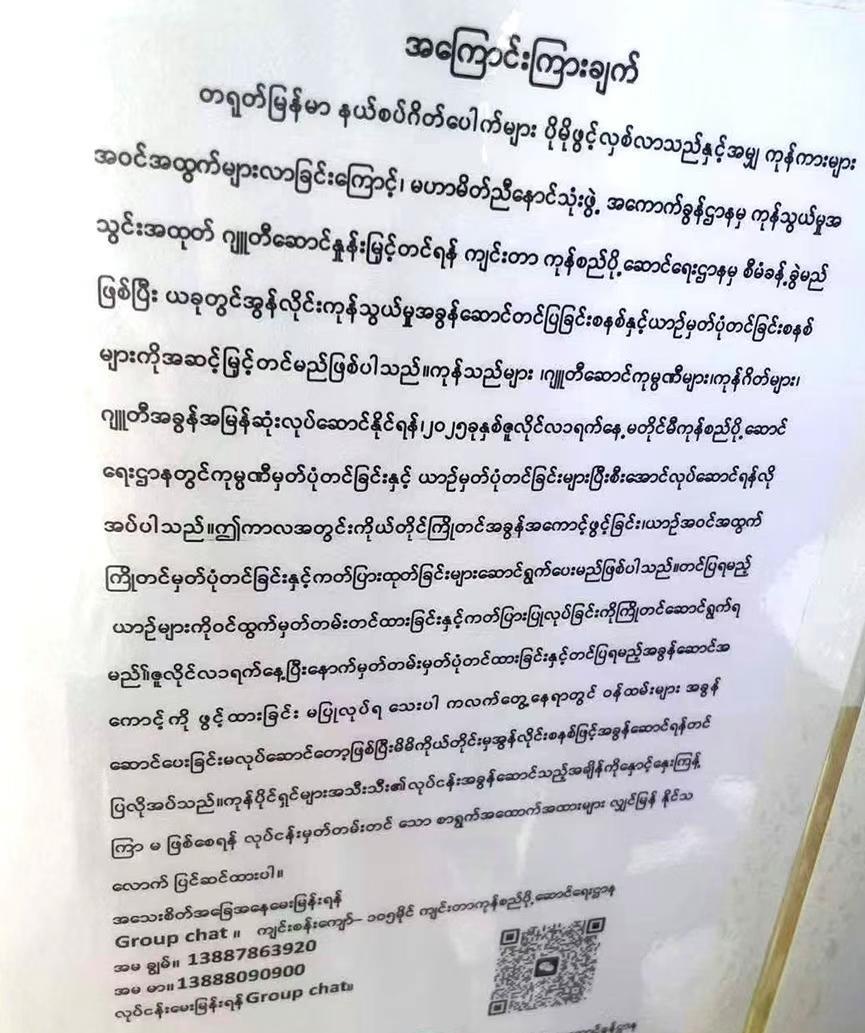 အကြောင်းကြားချက်
တရုတ်မြန်မာ နယ်စပ်ဂိတ်ပေါက်များ ပိုမိုဖွင့်လှစ်လာသည်နှင့်အမျှ ကုန်ကားများ
အဝင်အထွက်များလာခြင်းကြောင့်၊ မဟာမိတ်ညီနောင်သုံးဖွဲ့ အကောက်ခွန်ဌာနမှ ကုန်သွယ်မှုအ
သွင်းအထုတ် ဂျူတီဆောင်နှုန်းမြှင့်တင်ရန် ကျင်းတာ ကုန်စည်ပို့ဆောင်ရေးဌာနမှ စီမံခန့်ခွဲမည်
ဖြစ်ပြီး ယခုတွင်အွန်လိုင်းကုန်သွယ်မှုအခွန်ဆောင်တင်ပြခြင်းစနစ်နှင့်ယာဉ်မှတ်ပုံတင်ခြင်းစနစ်
များကိုအဆင့်မြှင့်တင်မည်ဖြစ်ပါသည်။ကုန်သည်များ ၊ဂျူတီဆောင်ကုမ္ပဏီများ၊ကုန်ဂိတ်များ၊
ဂျူတီအခွန်အမြန်ဆုံးလုပ်ဆောင်နိုင်ရန်၊၂၀၂၅ခုနှစ်ဇူလိုင်လ၁ရက်နေ့မတိုင်မီကုန်စည်ပို့ဆောင်
ရေးဌာနတွင်ကုမ္ပဏီမှတ်ပုံတင်ခြင်းနှင့် ယာဉ်မှတ်ပုံတင်ခြင်းများပြီးစီးအောင်လုပ်ဆောင်ရန်လို
အပ်ပါသည်။ဤကာလအတွင်းကိုယ်တိုင်ကြိုတင်အခွန်အကောင့်ဖွင့်ခြင်း၊ယာဉ်အဝင်အထွက်
ကြိုတင်မှတ်ပုံတင်ခြင်းနှင့်ကတ်ပြားထုတ်ခြင်းများဆောင်ရွက်ပေးမည်ဖြစ်ပါသည်။တင်ပြရမည့်
ယာဉ်များကိုဝင်ထွက်မှတ်တမ်းတင်ထားခြင်းနှင့်ကတ်ပြားပြုလုပ်ခြင်းကိုကြိုတင်ဆောင်ရွက်ရ
မည်။ဇူလိုင်လ၁ရက်နေ့ပြီးနောက်မှတ်တမ်းမှတ်ပုံတင်ထားခြင်းနှင့်တင်ပြရမည့်အခွန်ဆောင်အ
ကောင့်ကို ဖွင့်ထားခြင်း မပြုလုပ်ရ သေးပါ ကလက်တွေ့နေရာတွင် ဝန်ထမ်းများ အခွန်
ဆောင်ပေးခြင်းမလုပ်ဆောင်တော့ဖြစ်ပြီးမိမိကိုယ်တိုင်းမှအွန်လိုင်းစနစ်ဖြင့်အခွန်ဆောင်ရန်တင်
ပြလိုအပ်သည်။ကုန်ပိုင်ရှင်များအသီးသီး၏လုပ်ငန်းအခွန်ဆောင်သည့်အချိန်ကိုနှောင့်နှေးကြန့်
ကြာ မ ဖြစ်စေရန် လုပ်ငန်းမှတ်တမ်းတင် သော စာရွက်အထောက်အထားများ လျှင်မြန် နိုင်သ
လောက် ပြင်ဆင်ထားပါ။
အသေးစိတ်အခြေအနေမေးမြန်းရန်
Group chat ။ ကျင်းစန်းကျော်– ၁၀၅မိုင် ကျင်းတာကုန်စည်ပို့ဆောင်ရေးဌာန
အမ ချွမ်။ 13887863920
အမ မာ။13888090900
လုပ်ငန်းမေးမြန်းရန်Group chat။